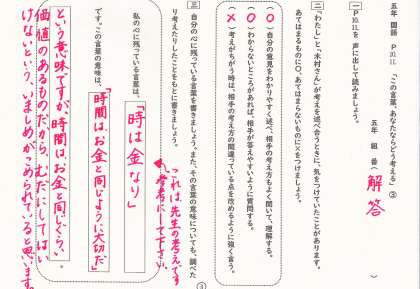 五年 国語 P10.11 「この言葉、あなたならどう考える」③
五年 組 番( )
解答
一 P10.11を 声に出して読みましょう。
二 「わたし」と、木村さんが考えを述べ合うときに、気をつけていたことがあります。
あてはまるものに○、あてはまらないものに×をつけましょう。
(○)自分の意見をわかりやすく述べ、相手の考え方もよく聞いて、理解する。
(○)わからないところがあれば、相手が答えやすいように質問する。
(×)考えがちがう時は、相手の考え方の間違っている点を改めるように強く言う。
三 自分の心に残っている言葉を書きましょう。また、その言葉の意味についても、調べた
り考えたりしたことをもとに書きましょう。
これは先生の考えです
参考にして下さい。
私の心に残っている言葉は、
「時は金なり」
です。この言葉の意味は、
「時間は、お金と同じように大切だ」
という意味ですが、時間は、お金と同じぐらい、
価値のあるものだから、むだにしてはい
けないという、いましめがこめられていると思います。